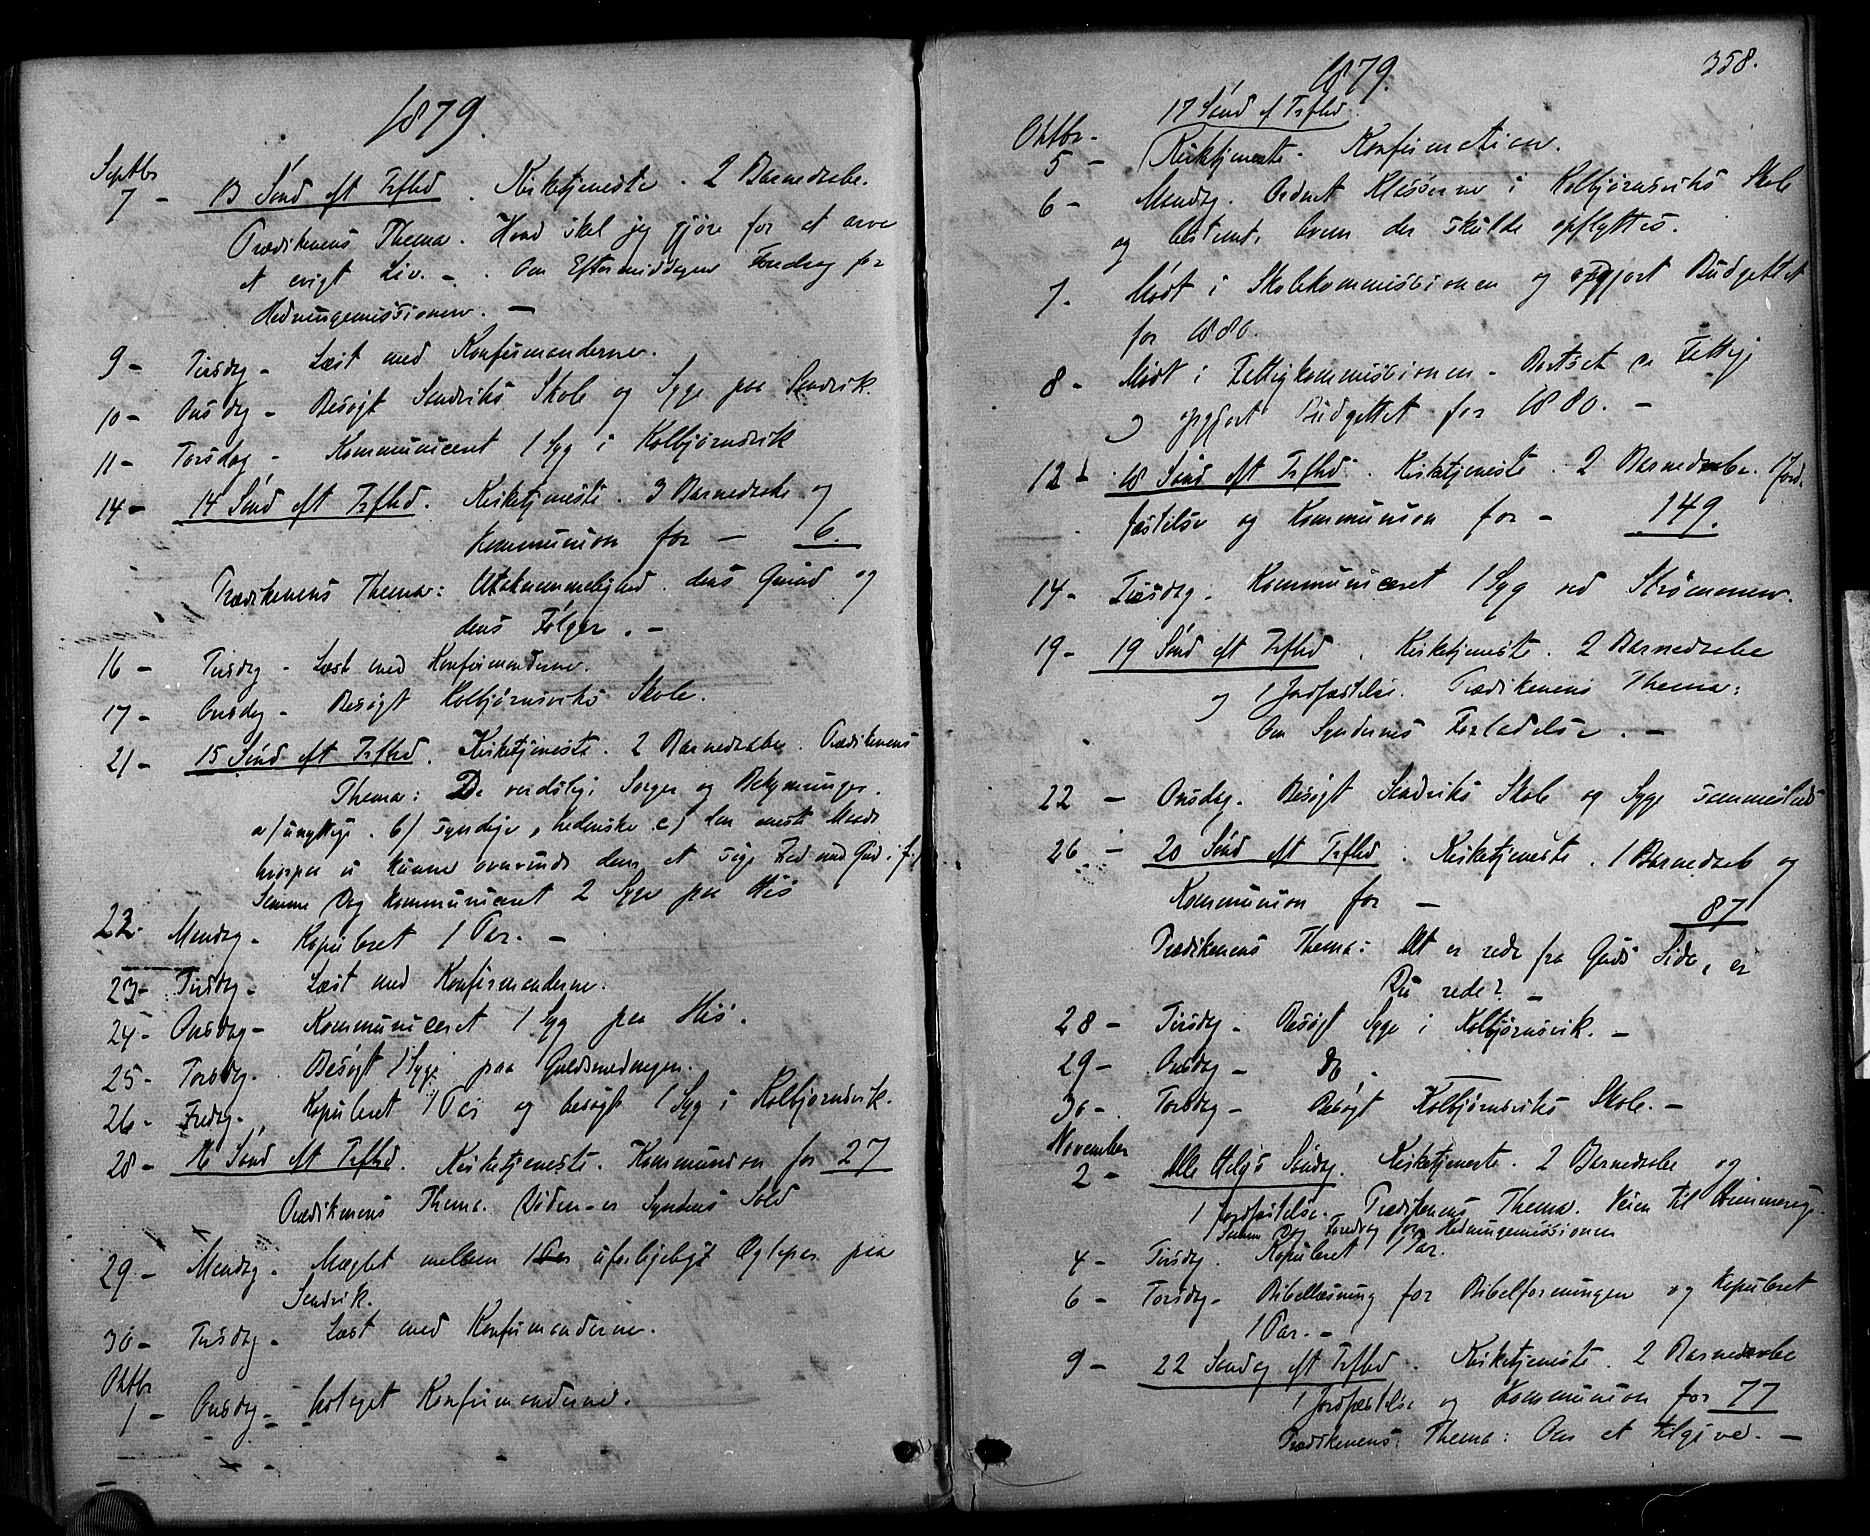 1879.
Septbr
7 - 13 Sønd eft Trftd. Kirketjeneste. 2 Barnedaabe.
Prædikenens Thema. Hvad skal jeg gjøre for at arve
et evigt Liv. - . Om Eftermiddagen Foredrag for
Hedningemissionen. -
9 - Tirsdag - Læst med Konfirmanderne.
10 - Onsdag - Besøgt Sandviks Skole og Syge paa Sandvik.
11 - Torsdag - Kommuniceret 1 Syg i Kolbjørnsvik
14 - 14 Sønd eft Trftd. Kirketjeneste. 3 Barnedaabe og
Kommunion for - 6.
Prædikenens Thema: Utaknemmelighed. dens Grund og
dens Følger. -
16 - Tirsdag - Læst med Konfirmanderne.
17 - Onsdag - Besøgt Kolbjørnsviks Skole.
21 - 15 Sønd eft Trftd. Kirketjeneste. 2 Barnedaabe. Prædikenens
Thema: De verdslige Sorger og Bekymringer.
a/ unyttige. b/ syndige, hedenske c/ den eneste Maade
hvorpaa vi kunne overvinde dem at søge Fred med Gud i
Samme Dag kommuniceret 2 Syge paa His
22. Mandag - Kopuleret 1 Par. -
23 - Tirsdag - Læst med Konfirmanderne.
24 - Onsdag - Kommuniceret 1 Syg paa His.
25 - Torsdag - Besøgt 1 Syg paa Guldsmedengen.
26 - Fredag - Kopuleret 1 Par og besøgt 1 Syg i Kolbjørnsvik.
28 - 16 Sønd eft Trftd. Kirketjeneste. Kommunion for 27
Prædikenens Thema. Døden er Syndens Sold
29 - Mandag - Mæglet mellem 1 Par uforligeligt Ægtepar paa
Sandvik.
30 - Tirsdag - Læst med Konfirmanderne.
Oktbr
1 - Onsdag - Kologet Konfirmanderne.
358.
1879.
17 Sønd ef Trftd.
Oktbr.
5 - Kirketjeneste. Konfirmation.
6 - Mandag. Ordnet Klasserne i Kolbjørnsviks Skole
og bestemt, hvem der skulde opflyttes.
7. Mødt i Skolekommissionen og opgjort Budgettet
for 1880.
8 - Mødt i Fattigkommissionen - Bortsat Fattige
og opgjort Budgettet for 1880. -
12 - 18 Sønd eft Trftd. Kirketjeneste. 2 Barnedaabe. 1 Jord-
fæstelse og Kommunion for - 149.
14 - Tirsdag. Kommuniceret 1 Syg ved Strømmen.
19 - 19 Sønd eft Trftd. Kirketjeneste. 2 Barnedaabe
og 1 Jordfæstelse. Prædikenens Thema:
Om Syndernes Forladelse. -
22 - Onsdag. Besøgt Sandviks Skole og Syge sammesteds
26 - 20 Sønd eft Trftd. Kirketjeneste. 1 Barnedaab og
Kommunion for - 87
Prædikenens Thema: Alt er rede fra Guds Side, er
Du rede? -
28 - Tirsdag - Besøgt Syge i Kolbjørnsvik. -
29 - Onsdag - Do. -
30 - Torsdag - Besøgt Kolbjørnsviks Skole. -
November
2 - Alle Helgs Søndag. Kirketjeneste. 2 Barnedaabe og
1 Jordfæstelse. Prædikenens Thema. Veien til Himmerige.
Samme Dag Foredrag for Hedningemissionen
4 - Tirsdag. Kopuleret 1 Par.
6 - Torsdag - Bibellæsning for Bibelforeningen og Kopuleret
1 Par. -
9 - 22 Søndag eft Trftd. Kirketjeneste. 2 Barnedaabe
1 Jordfæstelse og Kommunion for 77
Prædikenens Thema: Om at tilgive. -